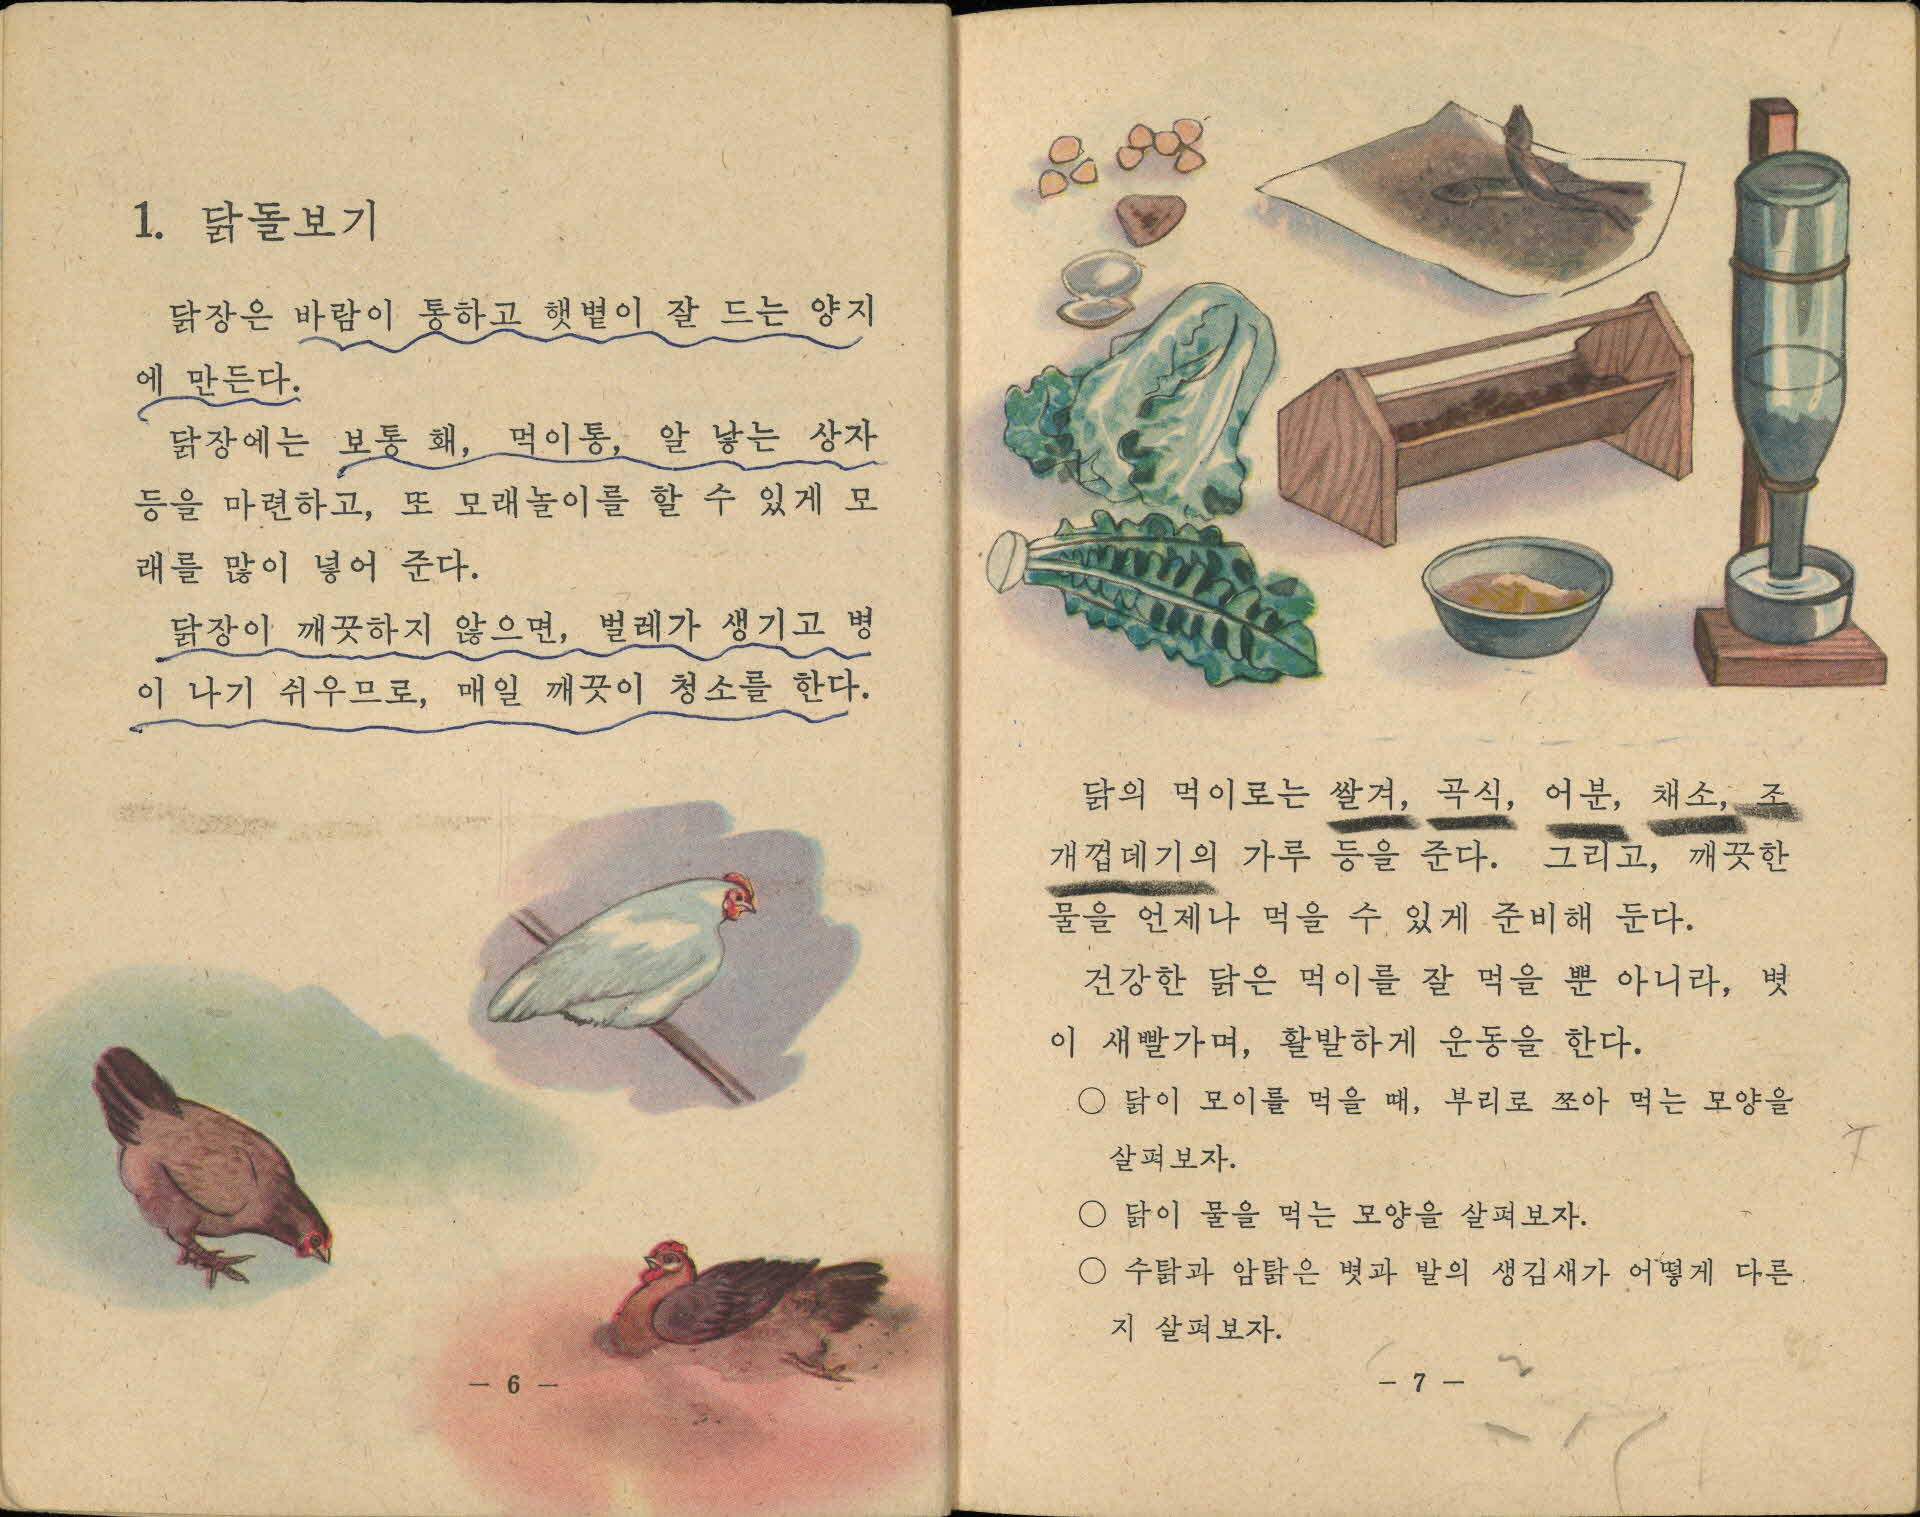 1. 닭돌보기
닭장은 바람이 통하고 햇볕이 잘 드는 양지
에 만든다.
닭장에는 보통 홰, 먹이통, 알 낳는 상자
등을 마련하고, 또 모래놀이를 할 수 있게 모
래를 많이 넣어 준다.
닭장이 깨끗하지 않으면, 벌레가 생기고 병
이 나기 쉬우므로, 매일 깨끗이 청소를 한다.
— 6 —
닭의 먹이로는 쌀겨, 곡식, 어분, 채소, 조
개껍데기의 가루 등을 준다. 그리고, 깨끗한
물을 언제나 먹을 수 있게 준비해 둔다.
건강한 닭은 먹이를 잘 먹을 뿐 아니라, 볏
이 새빨가며, 활발하게 운동을 한다.
○ 닭이 모이를 먹을 때, 부리로 쪼아 먹는 모양을
살펴보자.
○ 닭이 물을 먹는 모양을 살펴보자.
○ 수탉과 암탉은 볏과 발의 생김새가 어떻게 다른
지 살펴보자.
— 7 —